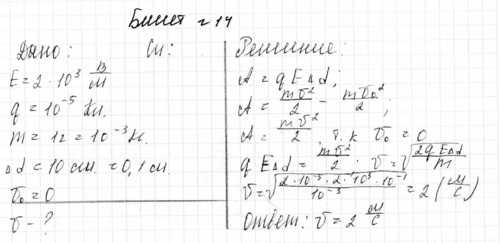 Билет №14
Дано:
Си:
E = 2 · 10³ В/М
q = 10⁻⁵ Кл.
m = 1г = 10⁻³ кг.
Δd = 10 см. = 0,1 см.
υ₀ = 0
υ - ?
Решение:
A = qEΔd;
A = mυ²/2 - mυ₀²/2;
A = mυ²/2, т.к υ₀ = 0
qEΔd = mυ²/2 · υ = √(2qEΔd/m)
υ = √(2·10⁻⁵·2·10³·10⁻¹/10⁻³) = 2 (м/с)
Ответ: υ = 2 м/с